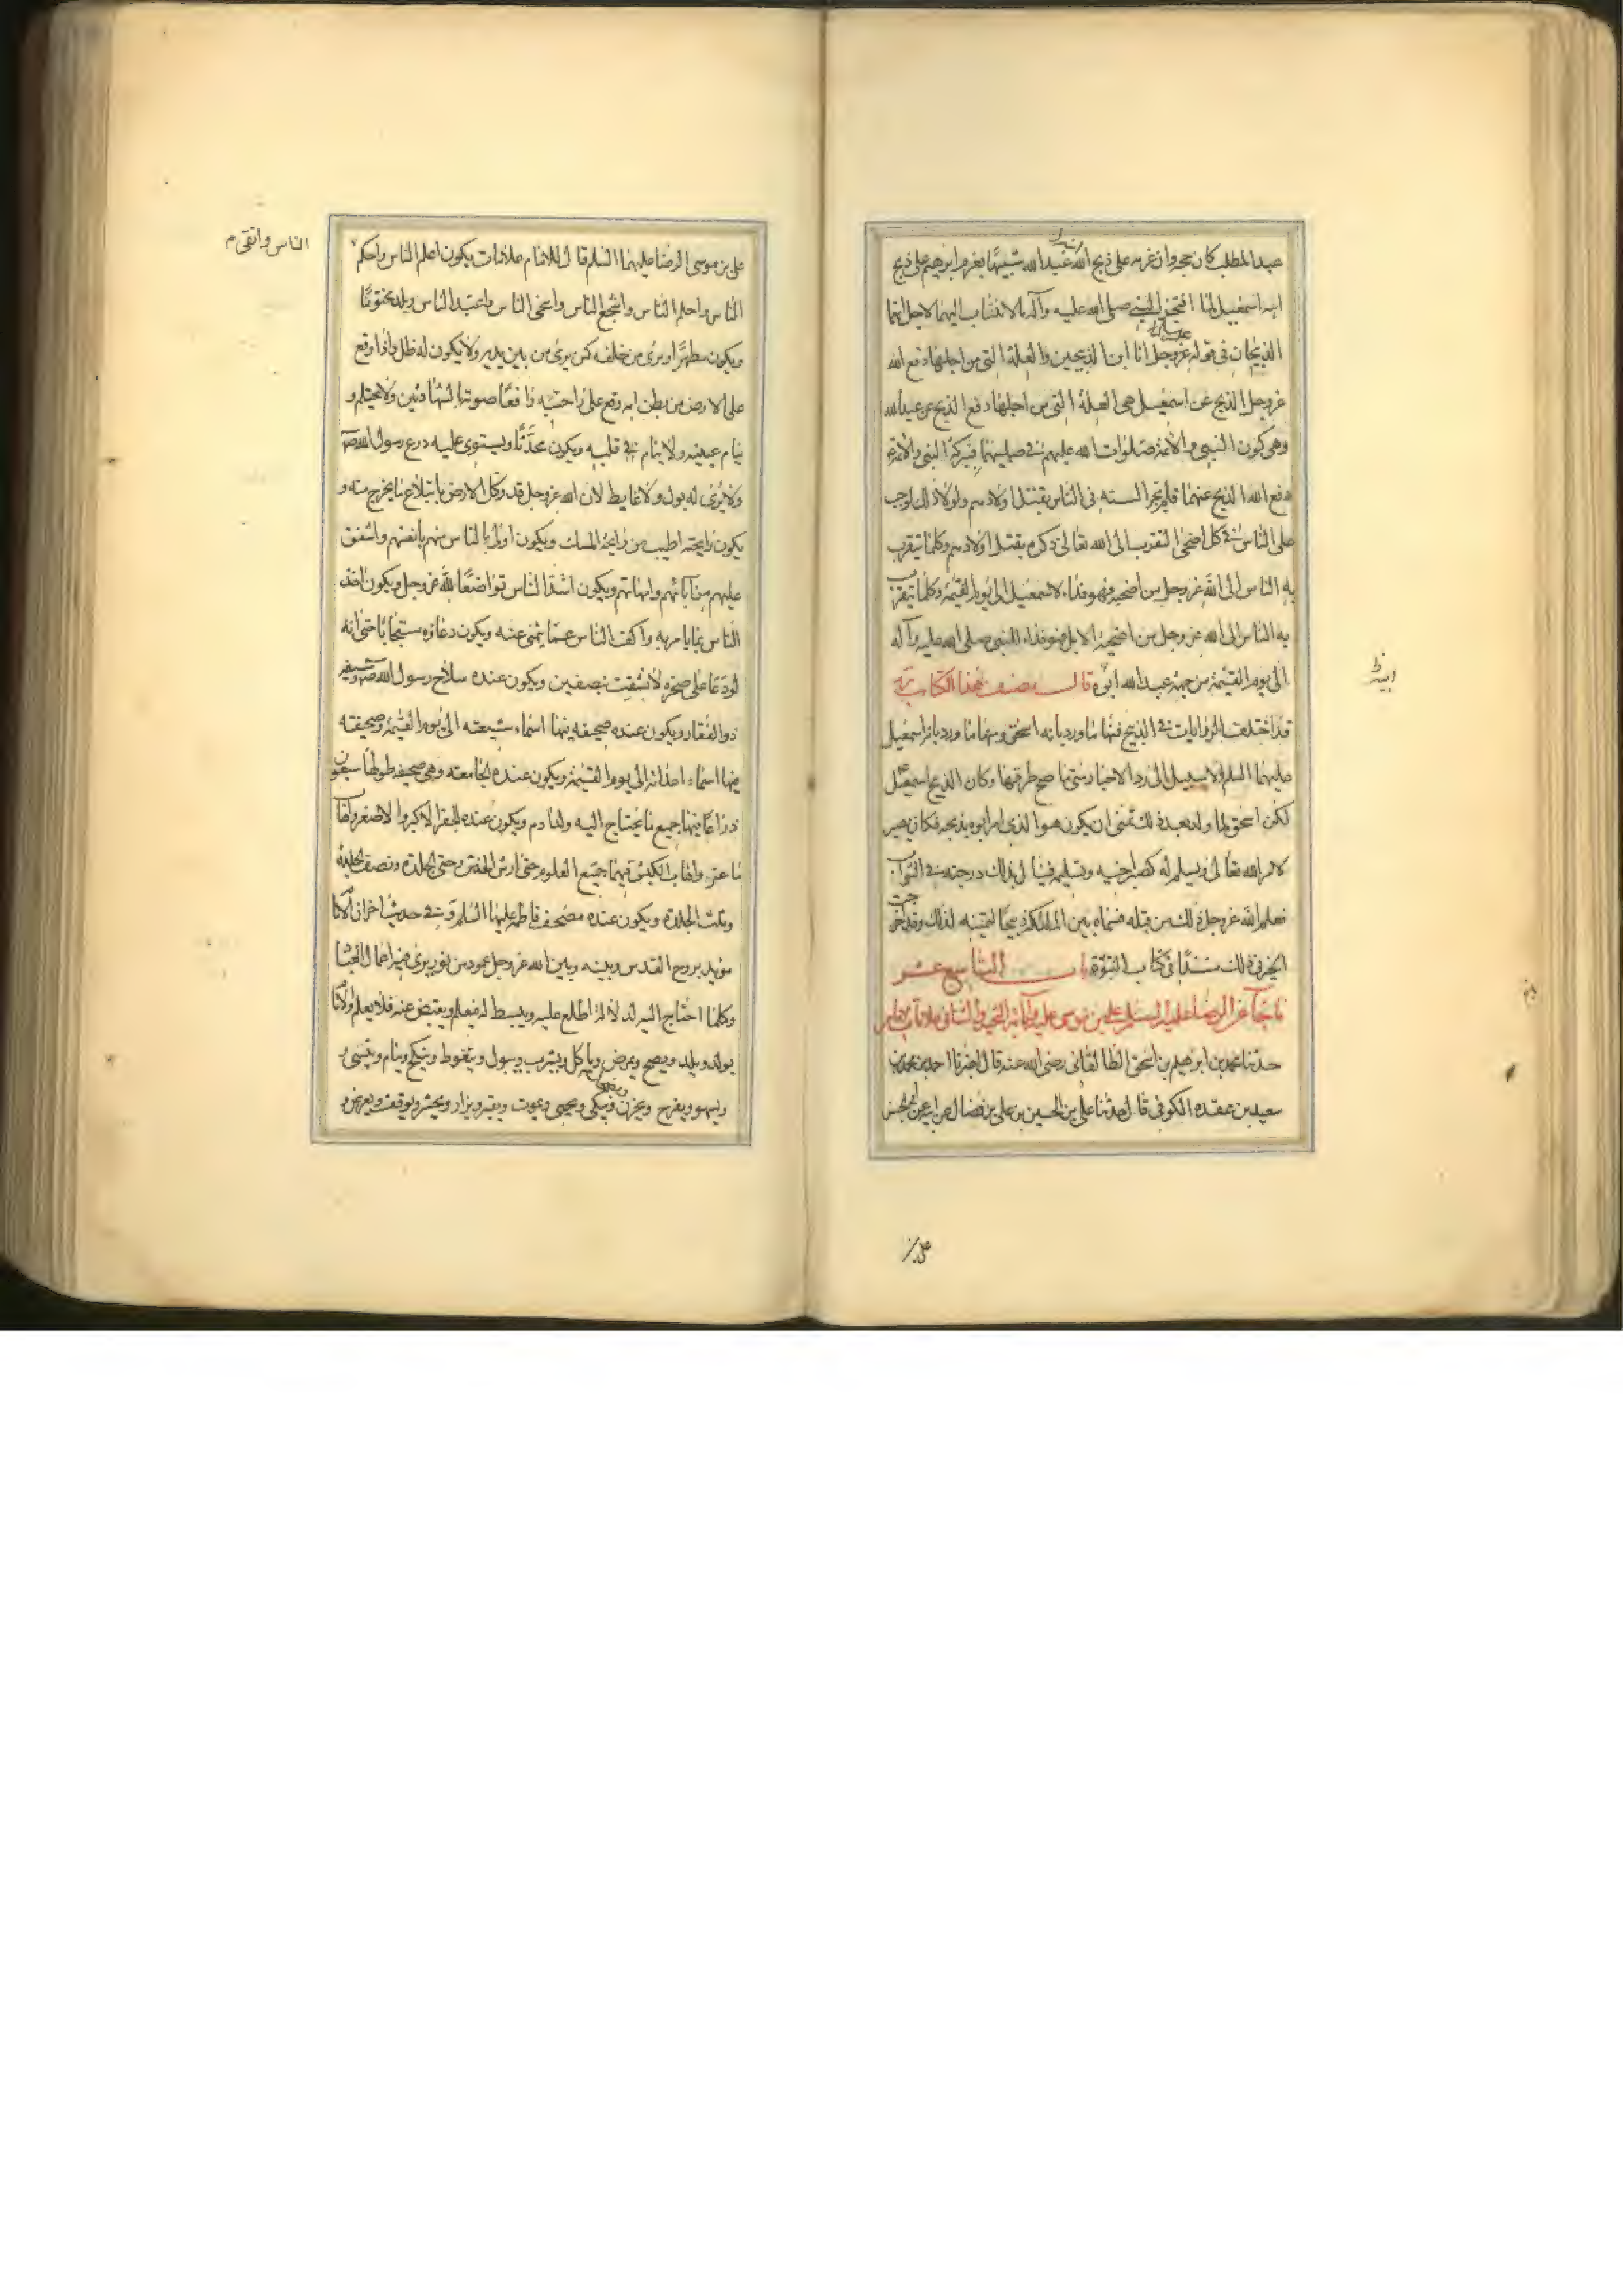 عبدالمطلب كان حجة وان عزمه على ذبح ابنه عبدالله شبيها بعزم ابرهيم على ذبح
ابنه اسمعيل لما افتخر النبي صلى الله عليه وآله بالانتساب اليهما لاجل انهما
الذبيحان في قوله عليه السلام انا ابن الذبيحين والعلة التي من اجلها دفع الله
عز وجل الذبح عن اسمعيل هي العلة التي من اجلها دفع الذبح عن عبدالله
وهي كون النبي والائمة صلوات الله عليهم في صلبيهما فببركة النبي والائمة
دفع الله الذبح عنهما فلم تجر السنه في الناس بقتل اولادهم ولولا ذلك لوجب
على الناس في كل اضحى التقرب الى الله تعالى ذكره بقتل اولادهم وكلما يتقرب
به الناس الى الله عز وجل من اضحية فهو فداء لاسمعيل الى يوم القيمة وكلما يتقرب
به الناس الى الله عز وجل من اضحية الابل فهو فداء للنبي صلى الله عليه وآله
الى يوم القيمة من جهة عبدالله ابوه قال مصنف هذا الكتاب
قد اختلفت الروايات في الذبيح فمنها ما ورد بانه اسحق ومنها ما ورد بانه اسمعيل
عليهما السلم ولا سبيل الى رد الاخبار متى ما صح طرقها وكان الذبيح اسمعيل
لكن اسحق لما ولد بعد ذلك تمنى ان يكون هو الذي امر ابوه بذبحه فكان يصبر
لامر الله تعالى ويسلم له كصبر اخيه وتسليمه فينال بذلك درجته في الثواب
فعلم الله عز وجل ذلك من قلبه فسماه بين الملئكة ذبيحا لتمنيه لذلك وقد اخرجت
الخبر في ذلك مسندا في كتاب النبوة باب التاسع عشر
ما جاء عن الرضا عليه السلم علي بن موسى عليه وآبائه التحية والثنا في علامات الامام
حدثنا محمد بن ابرهيم بن اسحق الطالقاني رضي الله عنه قال اخبرنا احمد بن محمد بن
سعيد بن عقده الكوفي قال حدثنا علي بن الحسين بن علي بن فضال عن ابيه عن ابي الحسن
علي بن موسى الرضا عليهما السلم قال للامام علامات يكون اعلم الناس واحكم
الناس واتقى م
الناس واحلم الناس واشجع الناس واسخى الناس واعبد الناس ويلد مختونا
ويكون مطهرا ويرى من خلفه كمن يرى من بين يديه ولا يكون له ظل واذا وقع
على الارض من بطن امه وقع على راحتيه رافعا صوته بالشهادتين ولا يحتلم و
ينام عينيه ولا ينام قلبه ويكون محدثا ويستوي عليه درع رسول الله ص
ولا يرى له بول ولا غايط لان الله عز وجل قد وكل الارض بابتلاع ما يخرج منه و
يكون رايحته اطيب من رايحة المسك ويكون اولى بالناس منهم بانفسهم واشفق
عليهم من آبائهم وامهاتهم ويكون اشد الناس تواضعا لله عز وجل ويكون اخذ
الناس بما يامر به واكف الناس عما ينهى عنه ويكون دعاؤه مستجابا حتى انه
لو دعا على صخرة لانشقت بنصفين ويكون عنده سلاح رسول الله ص وسيفه
ذو الفقار ويكون عنده صحيفة فيها اسماء شيعته الى يوم القيمة وصحيفته
فيها اسماء اعدائه الى يوم القيمة ويكون عنده الجامعته وهي صحيفة طولها سبعون
ذراعا فيها جميع ما يحتاج اليه ولد ادم ويكون عنده الجفر الاكبر والاصغر واهاب
ماعز واهاب الكبش فيهما جميع العلوم حتى ارش الخدش وحتى الجلدة ونصف الجلدة
وثلث الجلدة ويكون عنده مصحف فاطمة عليها السلم وفي حديث اخر ان الامام
مؤيد بروح القدس وبينه وبين الله عز وجل عمود من نور يرى فيه اعمال العباد
وكلما احتاج اليه لدلالة اطلع عليه ويبسط له فيعلم ويقبض عنه فلا يعلم والامام
يولد ويلد ويصح ويمرض وياكل ويشرب ويبول ويتغوط وينكح وينام وينسى و
ويسهو ويفرح ويحزن ويضحك ويبكي ويحيى ويموت ويقبر ويزار ويحشر ويوقف ويعرض و